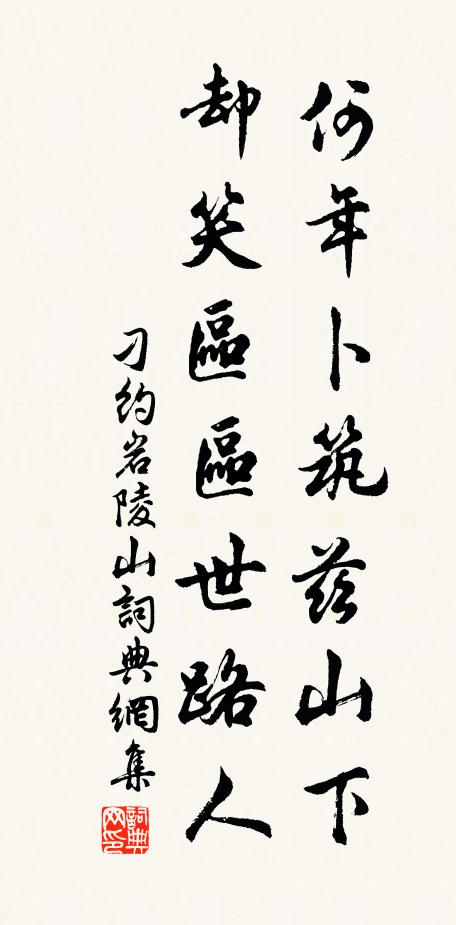 何年卜筑茲山下
却笑區區世路人
刁約岩陵山詞典網集
詞典網印